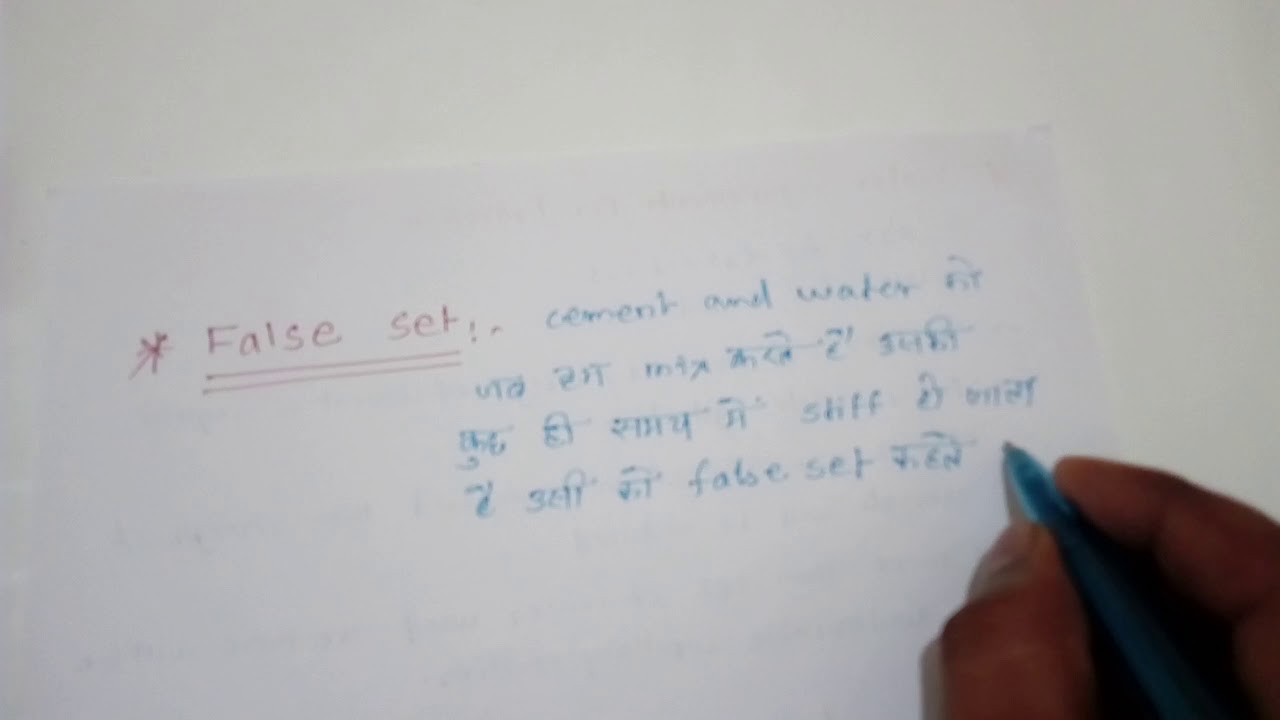 * False set:- cement and water को
जब हम mix करते हैं उसकी
कुछ ही समय में stiff हो जाता
है उसी को false set कहते